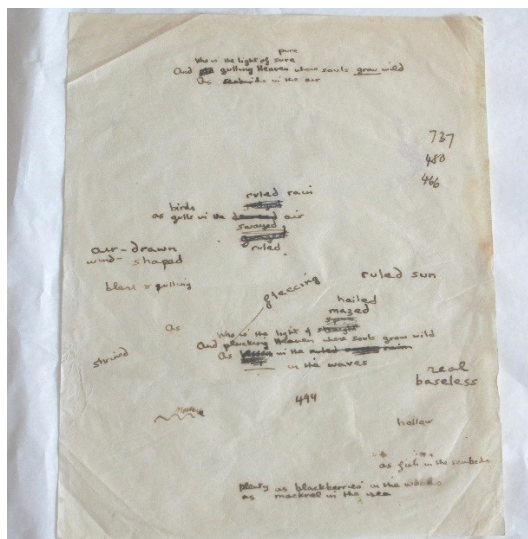 pure
Who is the light of sure
And gulling Heaven where souls grow wild
As in the air
737
480
466
ruled rain
birds
as gulls in the air
swayed
ruled
air-drawn
wind-shaped
blent & gulling
fleecing
ruled sun
hailed
mazed
As
Who is the light of
And plucking Heaven where souls grow wild
As in the ruled rain
in the waves
shrined
real
baseless
494
hollow
as fish in the seabeds
plenty as blackberries in the woods
as mackrel in the sea